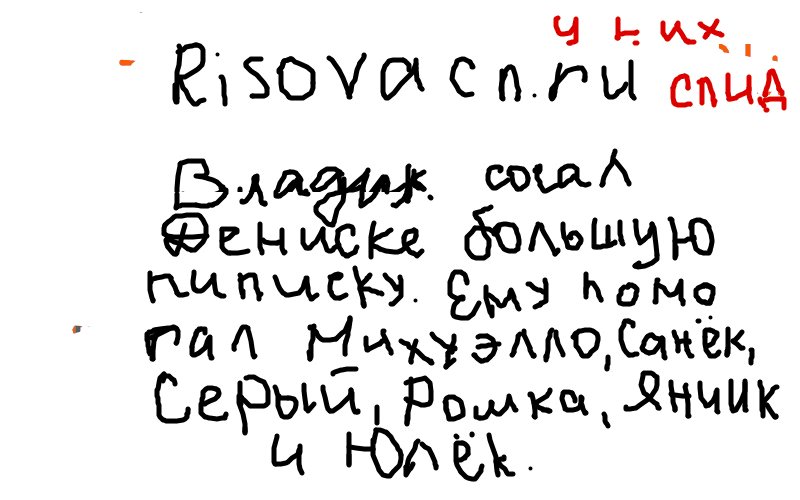 у них
Risovасп.ru спид
Владик. сосал
Дениске большую
пиписку. Ему помо
гал Михуэлло, Санёк,
Серый, Ромка, Янчик
и Юлёк.